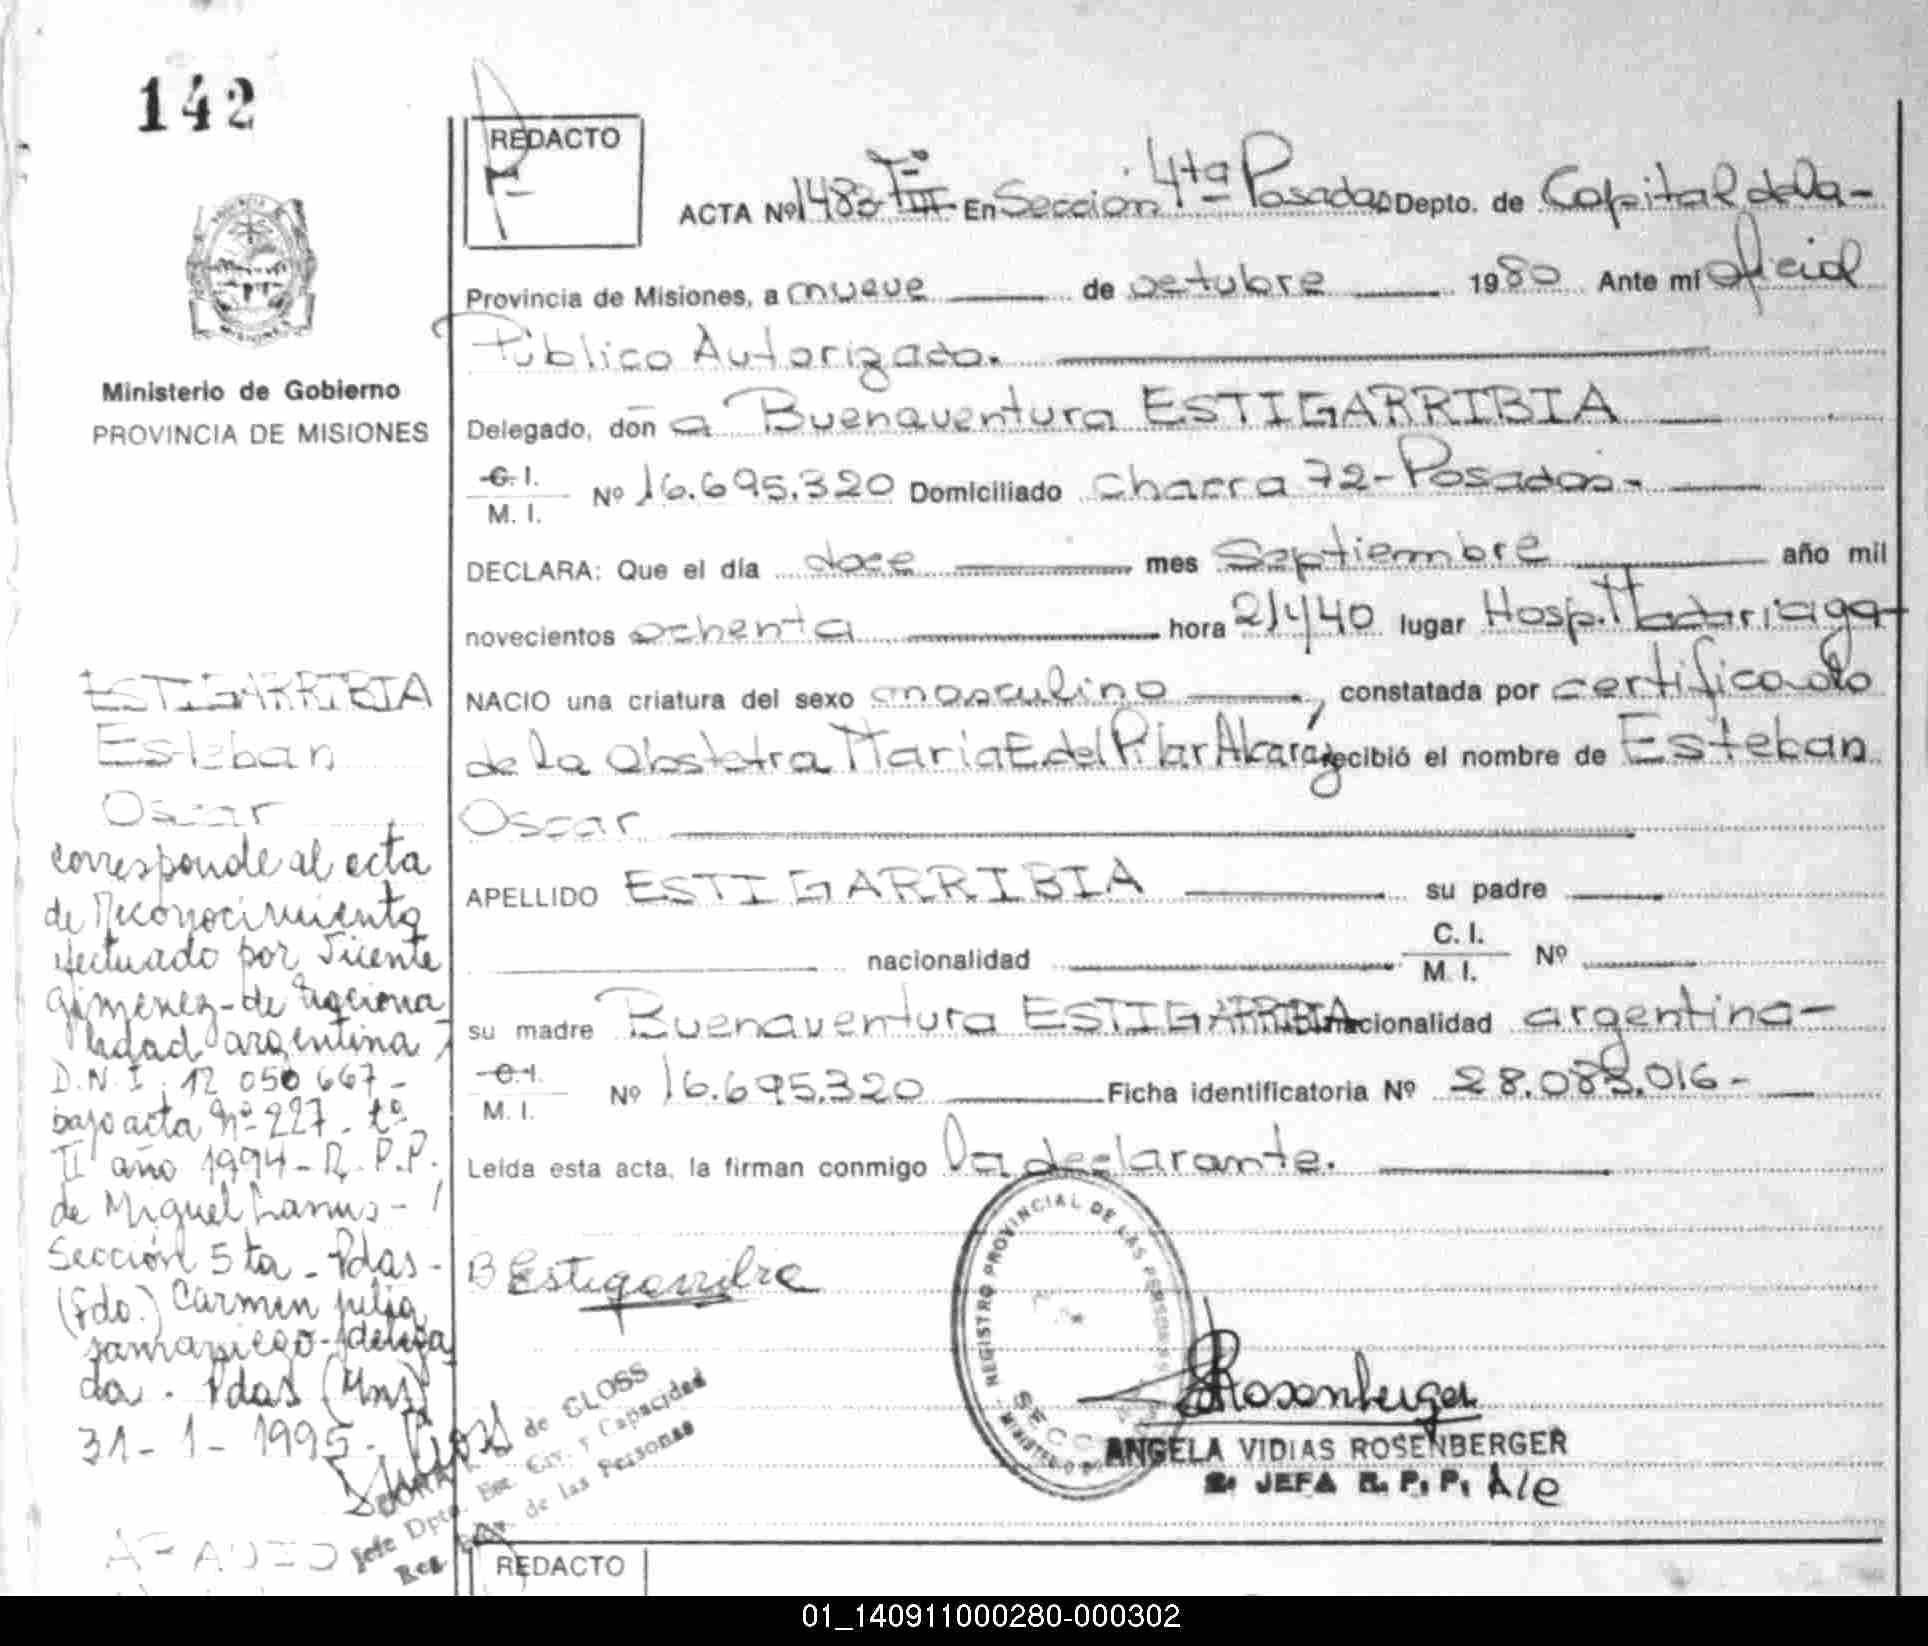 142
REDACTO
ACTA Nº 1483 Tº III En Sección 4ta Posadas Depto. de Capital de la-
Provincia de Misiones, a nueve de octubre 1980 Ante mí oficial
Público Autorizado.
Ministerio de Gobierno
PROVINCIA DE MISIONES
Delegado, doña Buenaventura ESTIGARRIBIA
C. I.
M. I.
Nº 16.695.320 Domiciliado chacra 72-Posadas-
DECLARA: Que el día doce mes Septiembre año mil
novecientos ochenta hora 21y40 lugar Hosp. Madariaga-
NACIO una criatura del sexo masculino, constatada por certificado
de la Obstetra María E. del Pilar Alcaráz recibió el nombre de Esteban
Oscar
APELLIDO ESTIGARRIBIA su padre
nacionalidad C. I.
M. I. Nº
su madre Buenaventura ESTIGARRIBIA nacionalidad argentina-
C. I.
M. I.
Nº 16.695.320 Ficha identificatoria Nº 28.083.016-
Leída esta acta, la firman conmigo la declarante.
B Estigarribia
REGISTRO PROVINCIAL DE LAS PERSONAS
SECC
Rosenberger
ANGELA VIDIAS ROSENBERGER
2. JEFA R. P. P. A/c
ESTIGARRIBIA
Esteban
Oscar
corresponde al acta
de Reconocimiento
efectuado por Vicente
Gimenez-de naciona
lidad argentina
D.N.I. 12 050 667-
bajo acta Nº 227- tº
II año 1994- R.P.P.
de Miguel Lanus-
Sección 5ta - Pdas-
(fdo.) Carmen Julia
Samaniego-delega
da. Pdas (Mns)
31-1-1995.
de GLOSS
Jefe Dpto. Est. Civ. y Capacidad
Reg. de las Personas
REDACTO
01_140911000280-000302